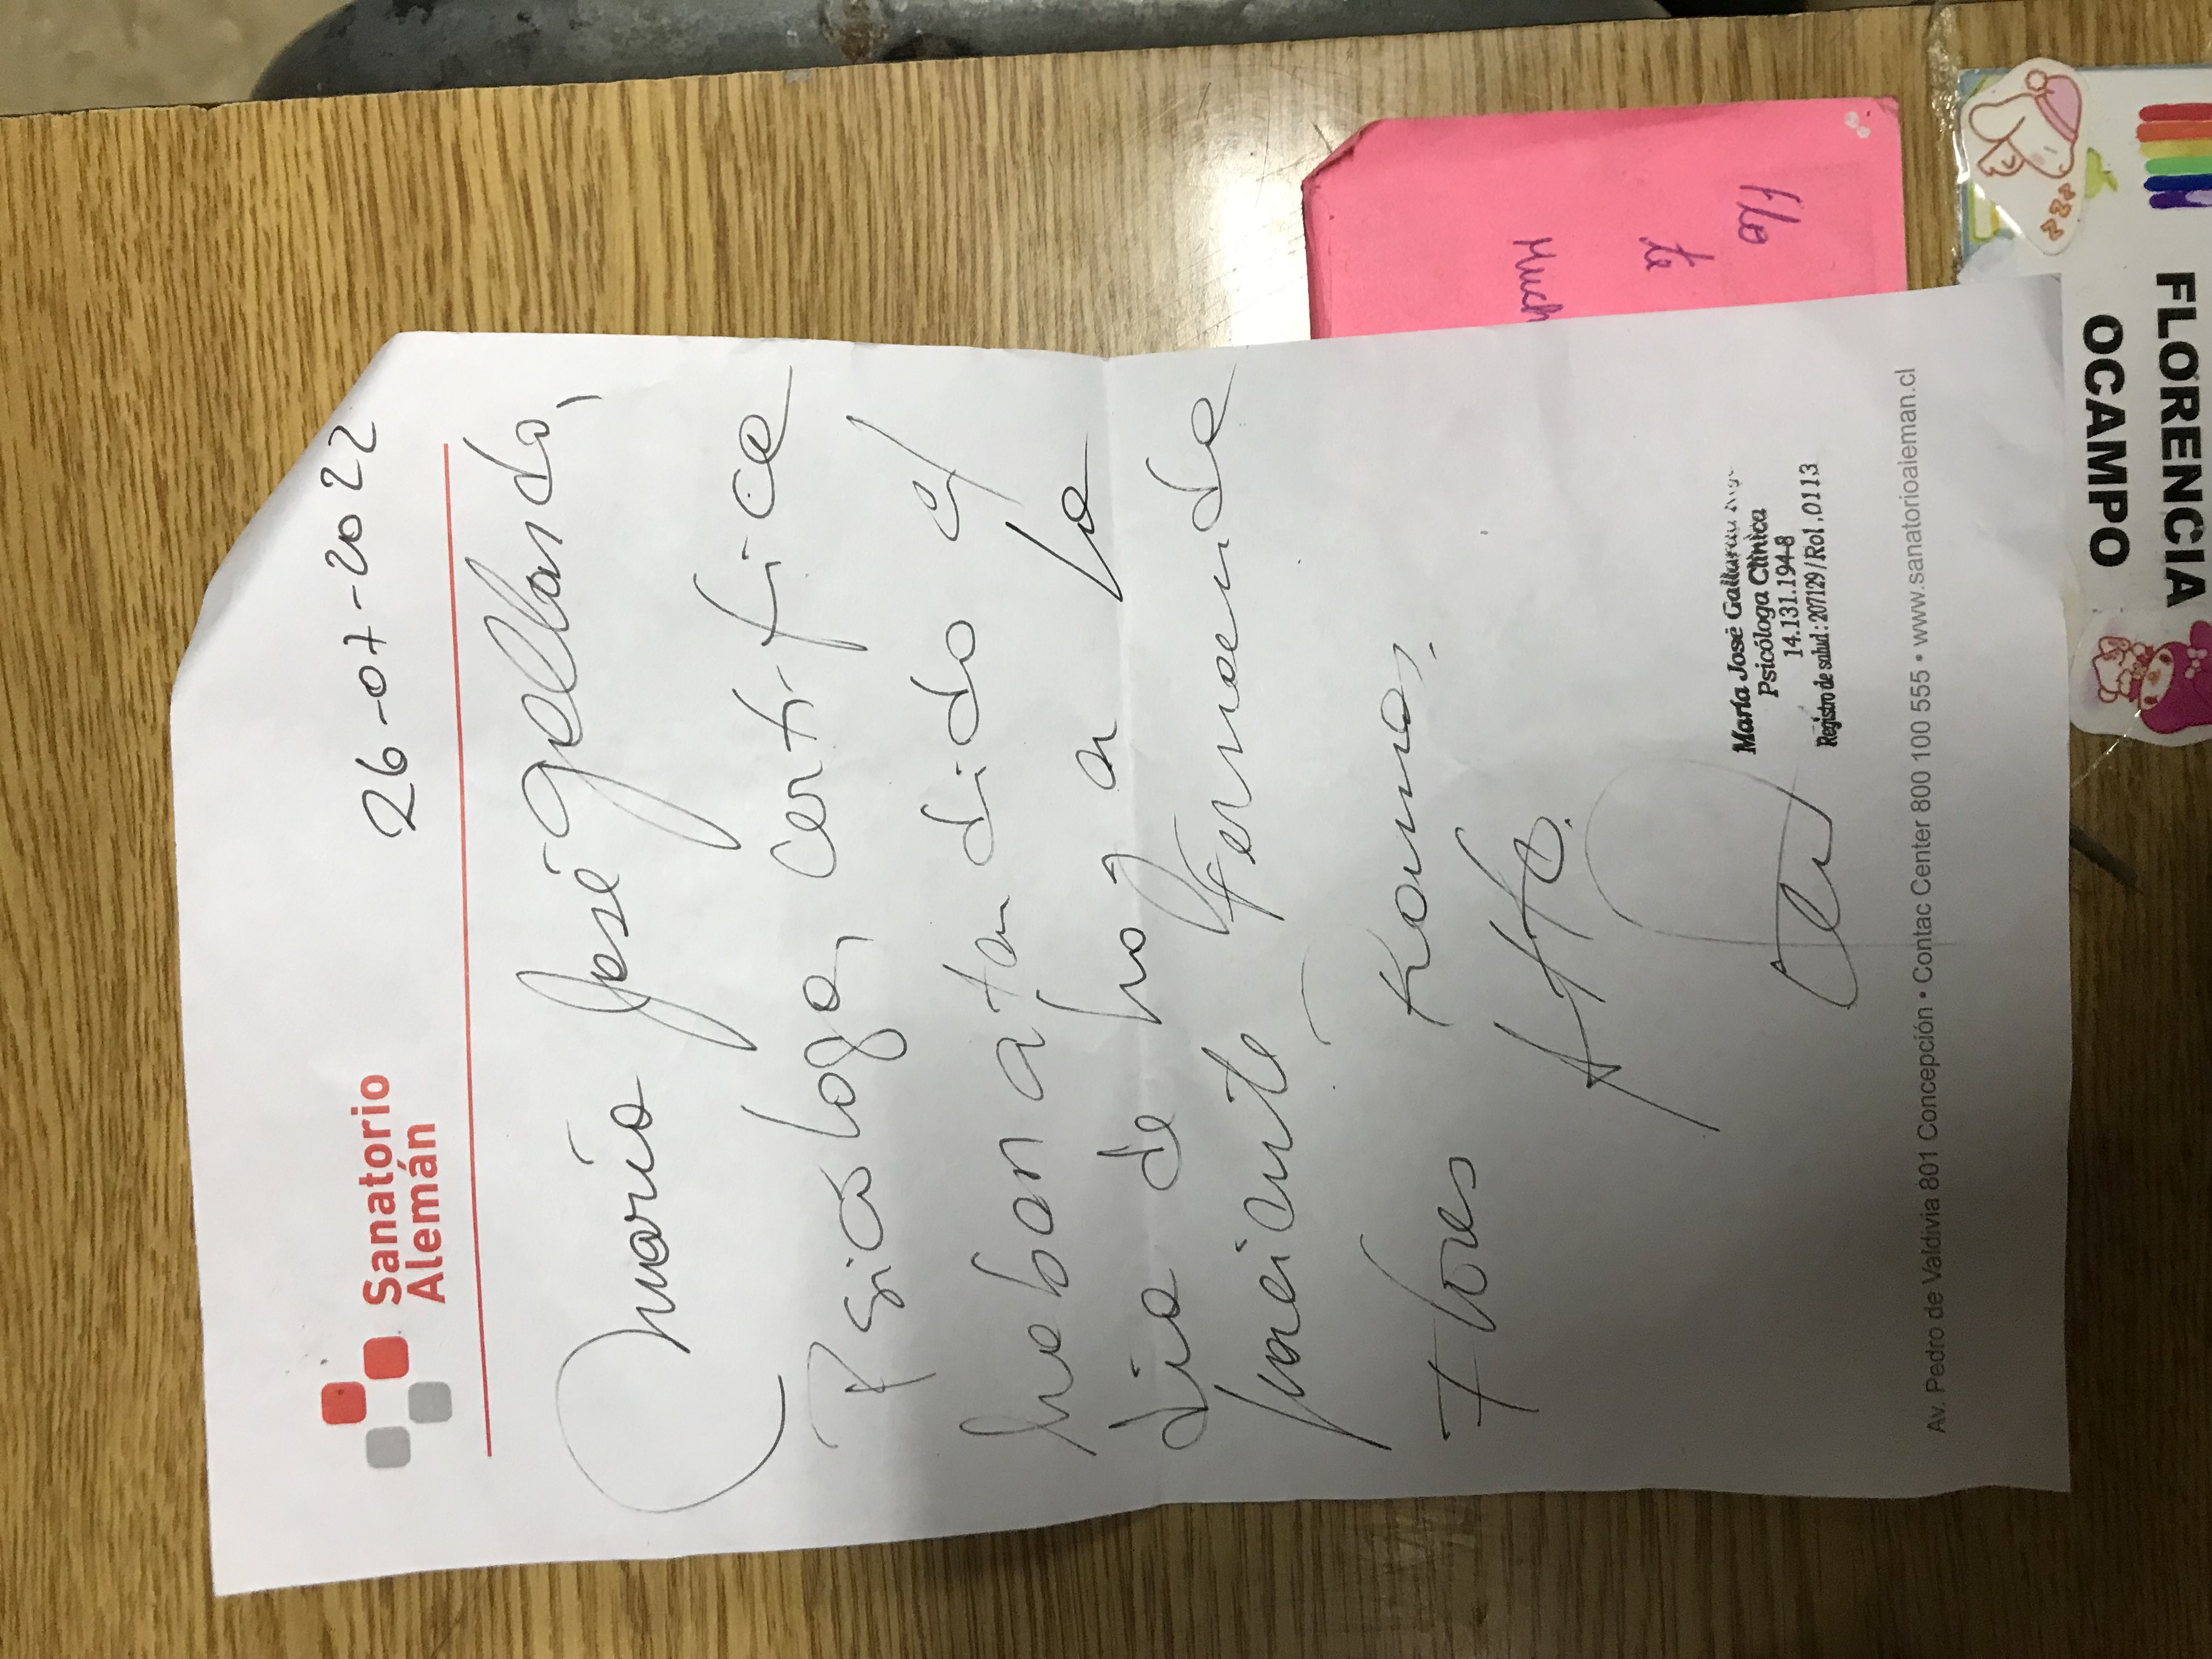 Sanatorio
Alemán
26-07-2022
María José Gallardo,
Psicologa, certifica
haber atendido el
día de hoy a la
paciente Fernanda
Flores Ramos.
Atte.
María José
Psicóloga Clínica
14.131.194-8
Registro de salud: 207129 / Rol. 0113
Av. Pedro de Valdivia 801 Concepción • Contac Center 800 100 555 • www.sanatorioaleman.cl
Flo
te
Much
FLORENCIA
OCAMPO